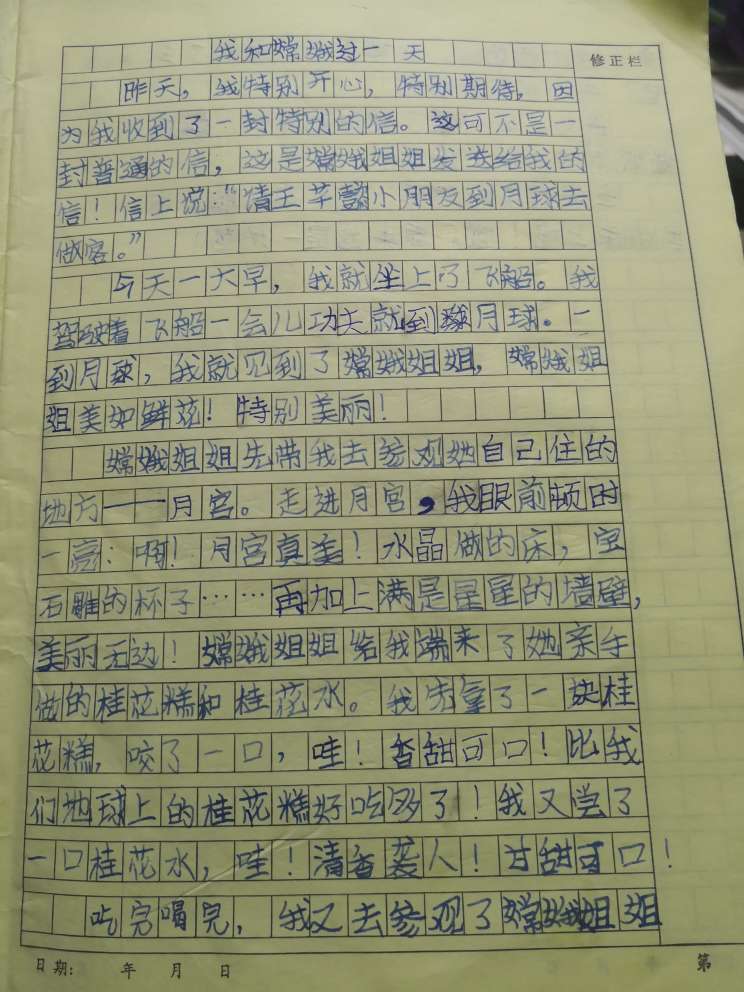 我和嫦娥过一天
修正栏
昨天，我特别开心，特别期待，因
为我收到了一封特别的信。这可不是一
封普通的信，这是嫦娥姐姐发送给我的
信！信上说：“请王芊懿小朋友到月球去
做客。”
今天一大早，我就坐上了飞船。我
驾驶着飞船一会儿功夫就到月球。一
到月球，我就见到了嫦娥姐姐，嫦娥姐
姐美如鲜花！特别美丽！
嫦娥姐姐先带我去参观她自己住的
地方——月宫。走进月宫，我眼前顿时
一亮：啊！月宫真美！水晶做的床，宝
石雕的杯子……再加上满是星星的墙壁，
美丽无边！嫦娥姐姐给我端来了她亲手
做的桂花糕和桂花水。我先拿了一块桂
花糕，咬了一口，哇！香甜可口！比我
们地球上的桂花糕好吃多了！我又尝了
一口桂花水，哇！清香袭人！甘甜可口！
吃完喝完，我又去参观了嫦娥姐姐
日期： 年 月 日
第